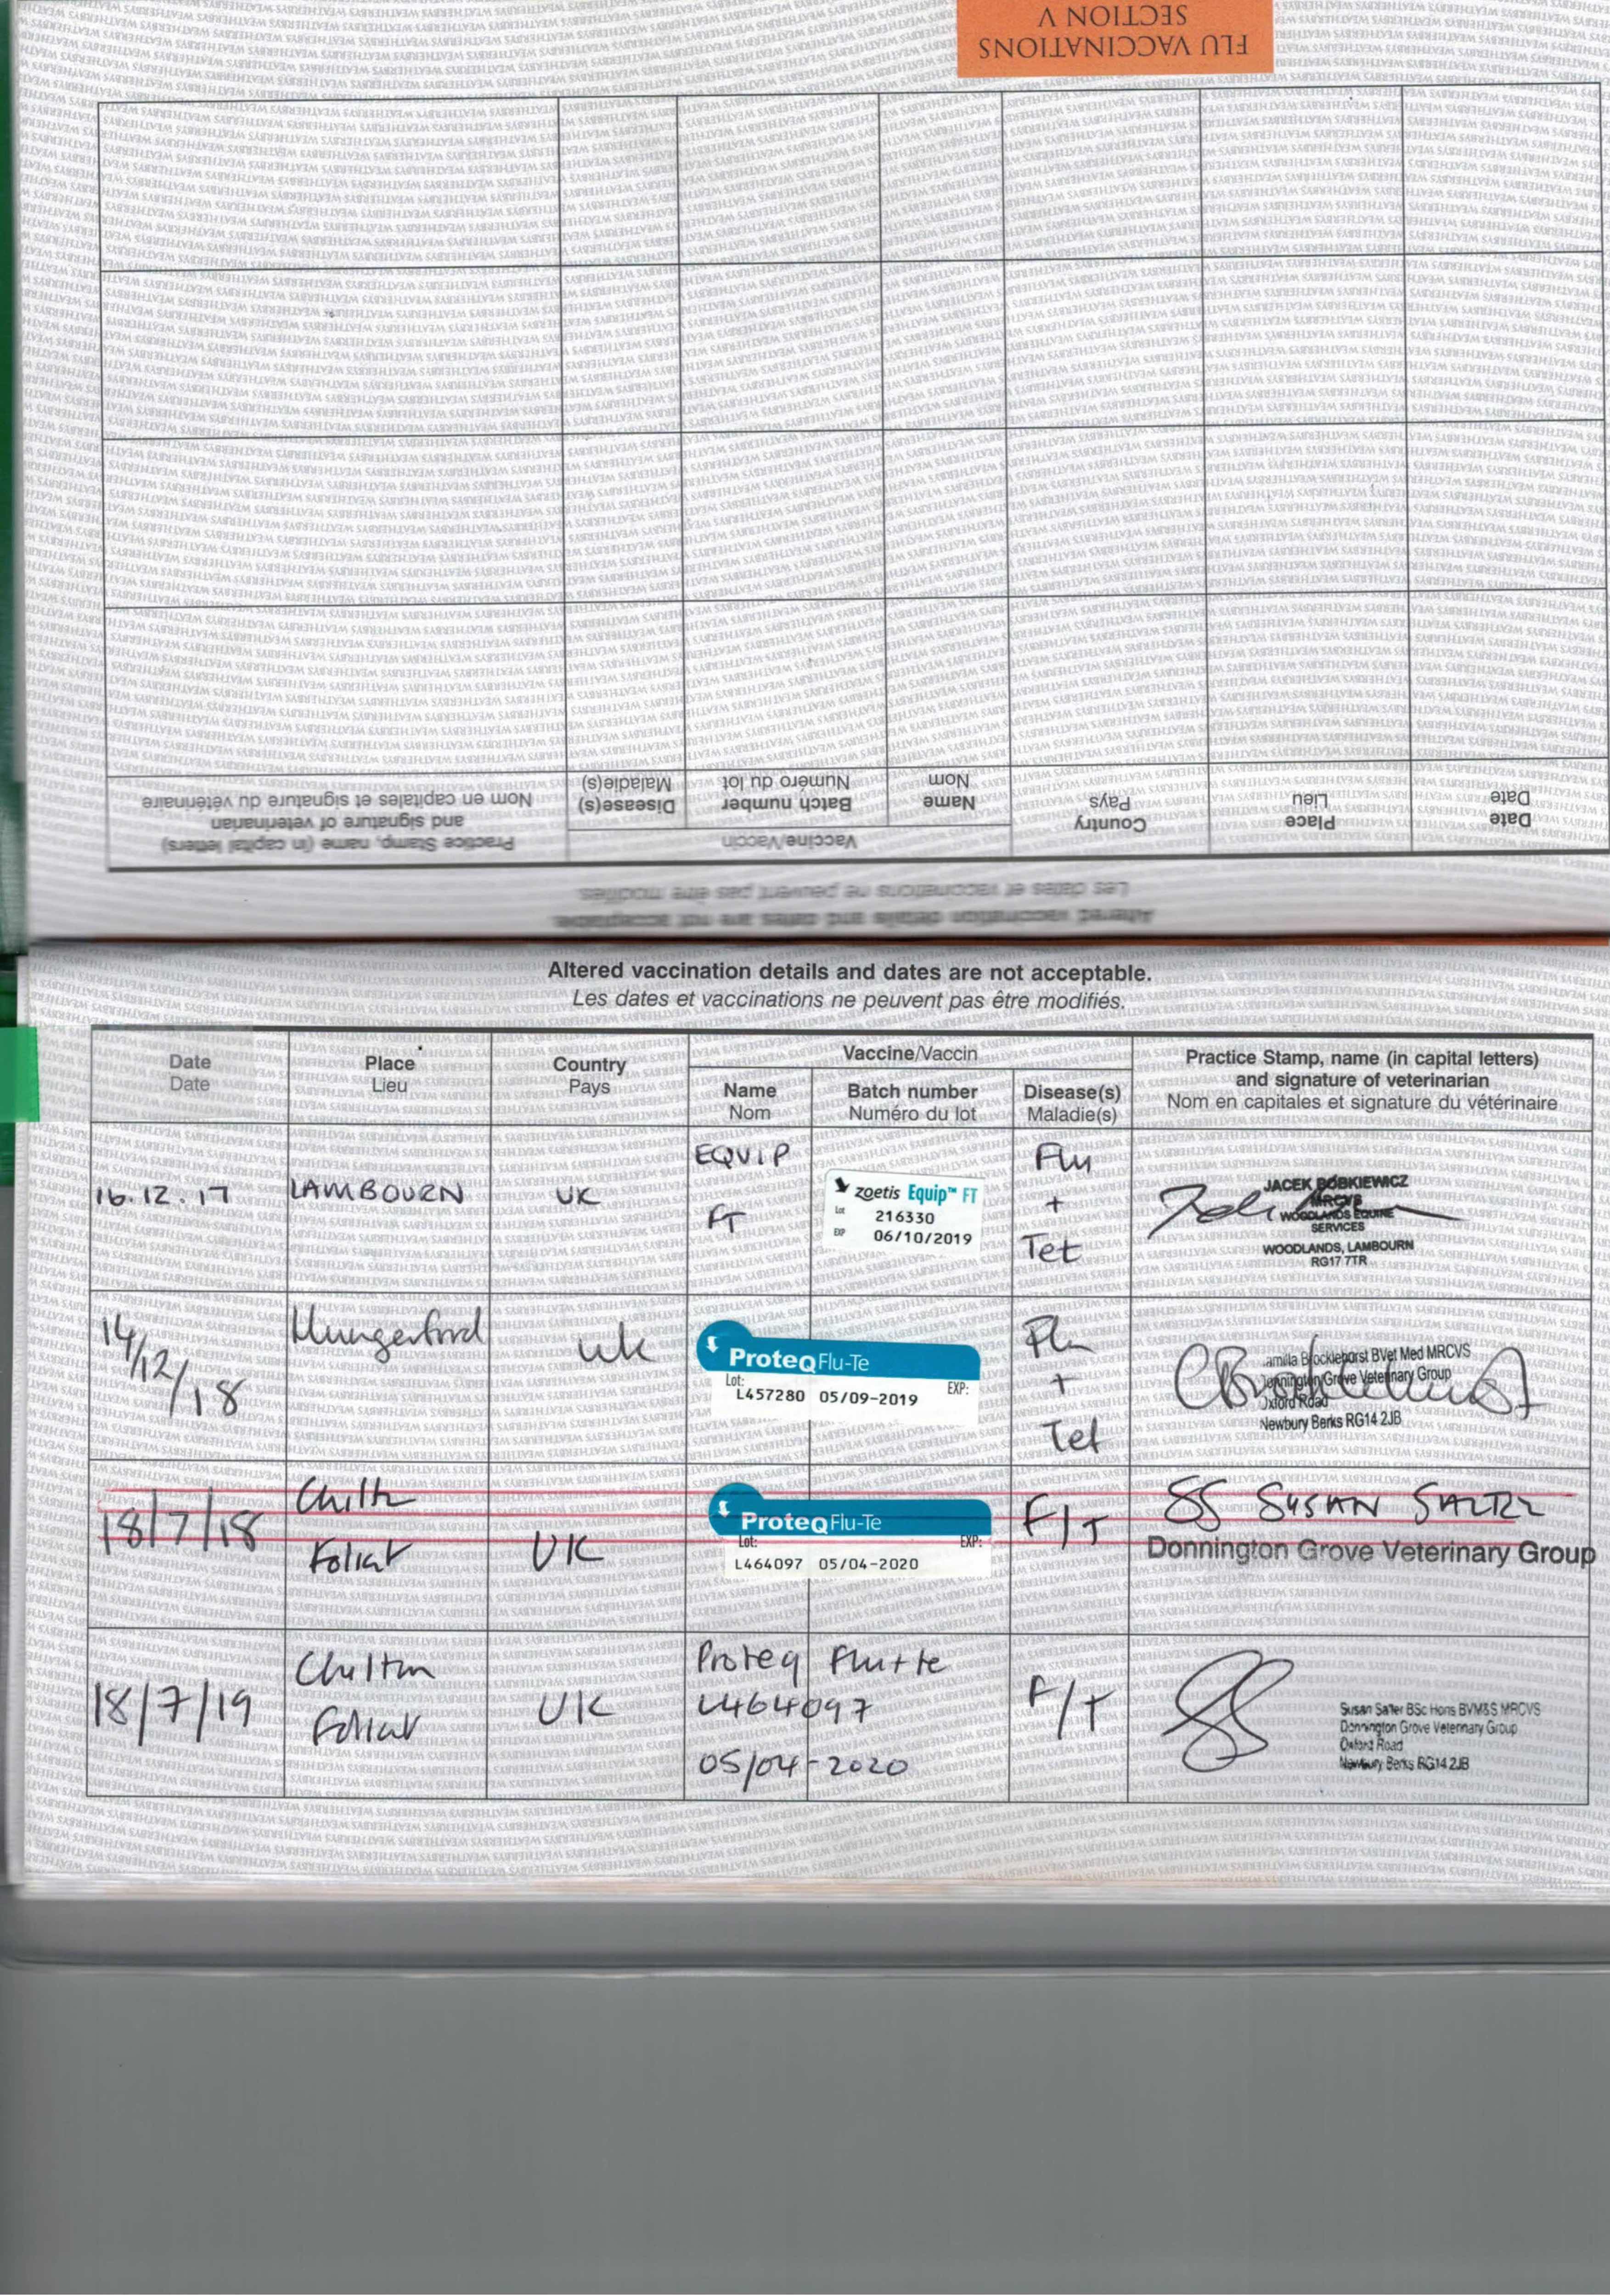 FLU VACCINATIONS
SECTION V
Altered vaccination details and dates are not acceptable.
Les dates et vaccinations ne peuvent pas être modifiés.
Date
Date
Place
Lieu
Country
Pays
Vaccine/Vaccin
Name
Nom
Batch number
Numéro du lot
Disease(s)
Maladie(s)
Practice Stamp, name (in capital letters)
and signature of veterinarian
Nom en capitales et signature du vétérinaire
Altered vaccination details and dates are not acceptable.
Les dates et vaccinations ne peuvent pas être modifiés.
Date
Date
Place
Lieu
Country
Pays
Vaccine/Vaccin
Name
Nom
Batch number
Numéro du lot
Disease(s)
Maladie(s)
Practice Stamp, name (in capital letters)
and signature of veterinarian
Nom en capitales et signature du vétérinaire
16.12.17
LAMBOURN
UK
EQUIP
FT
zoetis Equip™ FT
Lot 216330
EXP 06/10/2019
Flu
+
Tet
JACEK BOBKIEWICZ
MRCVS
WOODLANDS EQUINE
SERVICES
WOODLANDS, LAMBOURN
RG17 7TR
14/12/18
Hungerford
UK
ProteqFlu-Te
Lot: EXP:
L457280 05/09-2019
Flu
+
Tet
amilla Brocklehurst BVet Med MRCVS
Donnington Grove Veterinary Group
Oxford Road
Newbury Berks RG14 2JB
18/7/18
Foliat
UK
ProteqFlu-Te
Lot: EXP:
L464097 05/04-2020
F/T
SS SUSAN SALTER
Donnington Grove Veterinary Group
18/7/19
Chilton
Foliat
UK
Proteq Flu+te
L464097
05/04-2020
F/T
Susan Salter BSc Hons BVM&S MRCVS
Donnington Grove Veterinary Group
Oxford Road
Newbury Berks RG14 2JB